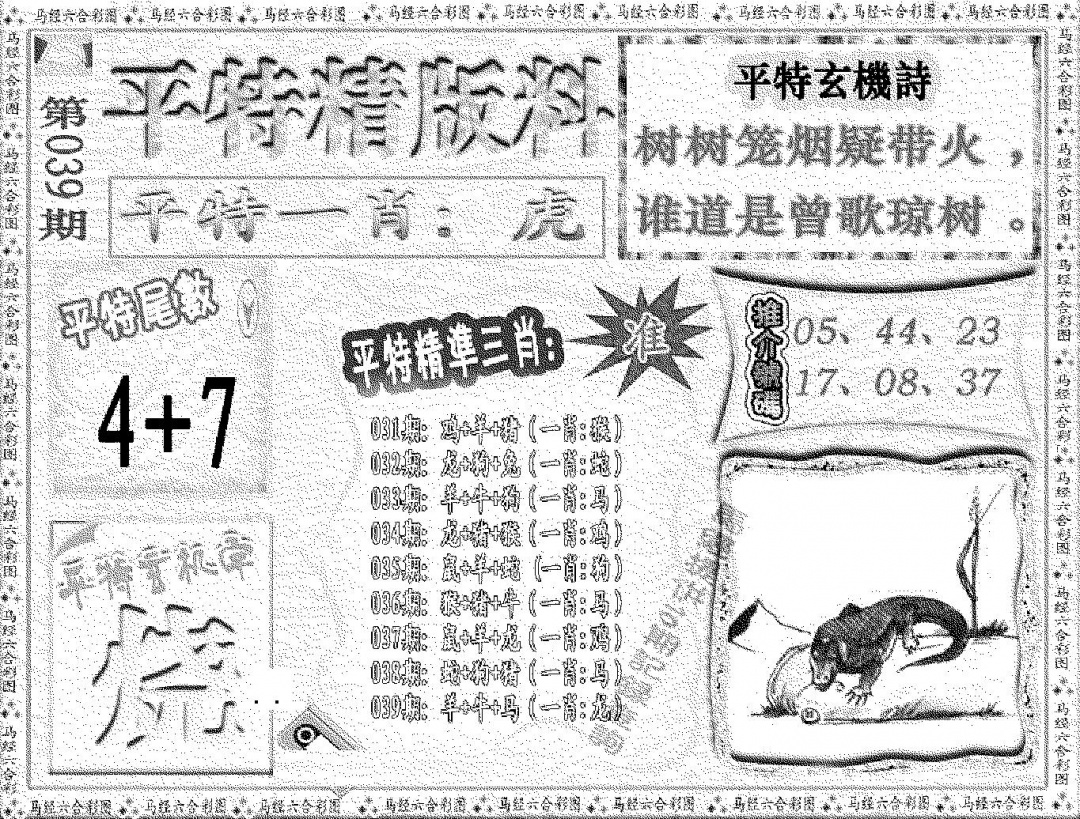 马经六合彩图 马经六合彩图 马经六合彩图 马经六合彩图 马经六合彩图 马经六合彩图 马经六合彩图 马经六合彩图 马经六合彩图
第039期
平特精版料
平特一肖：虎
平特玄機詩
树树笼烟疑带火，
谁道是曾歌琼树。
平特尾数
4+7
平特精準三肖:
准
推介號碼
05、44、23
17、08、37
031期: 鸡+羊+猪 (一肖:猴)
032期: 龙+狗+兔 (一肖:蛇)
033期: 羊+牛+狗 (一肖:马)
034期: 龙+猪+猴 (一肖:鸡)
035期: 鼠+羊+蛇 (一肖:狗)
036期: 猴+猪+牛 (一肖:马)
037期: 鼠+羊+龙 (一肖:鸡)
038期: 蛇+狗+猪 (一肖:马)
039期: 羊+牛+马 (一肖:龙)
平特玄机字
马经六合彩图 马经六合彩图 马经六合彩图 马经六合彩图 马经六合彩图 马经六合彩图 马经六合彩图 马经六合彩图 马经六合彩图